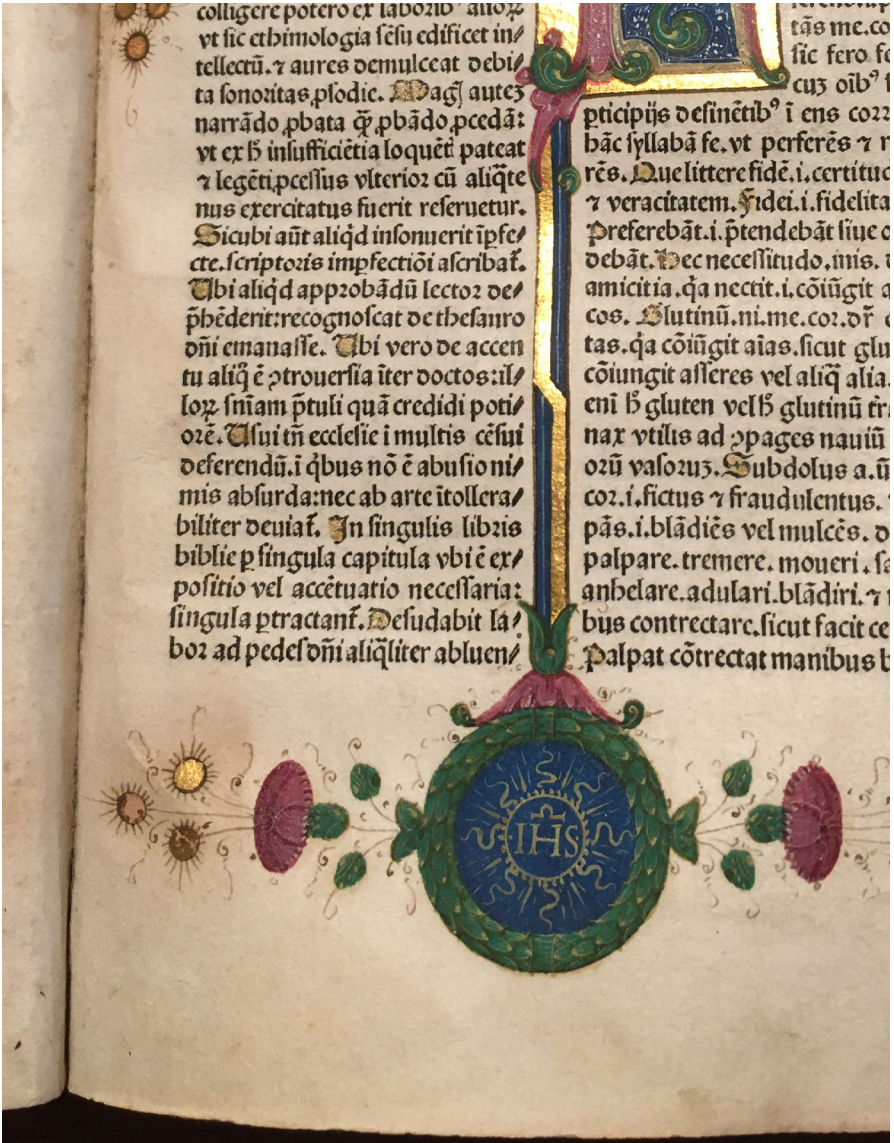 colligere potero ex laborib⁹ alioꝝ
vt sic ethimologia sēsu edificet in⸗
tellectū.⁊ aures demulceat debi⸗
ta sonoritas ꝓsodie. Magꝭ autez
narrādo ꝓbata qꝫ̄ ꝓbādo ꝓcedā:
vt ex ħ insufficiētia loquēti pateat
⁊ legēti ꝓcessus vlterior cū aliq̄te
nus exercitatus fuerit reseruetur.
Sicubi aūt aliq̇d insonuerit īpfe⸗
cte.scriptoris imꝑfectiōi ascribat᷑.
Ubi aliq̇d approbādū lector de⸗
p̄hēderit:recognoscat de thesauro
dn̄i emanasse. Ubi vero de accen
tu aliq̄ ē ꝯtrouersia īter doctos:il⸗
loꝝ sn̄iam p̄tuli quā credidi poti⸗
orē. Usui tn̄ ecclesie i multis cēsui
deferendū.ī q̇bus nō ē abusio ni⸗
mis absurda:nec ab arte ītollera⸗
biliter deuiat᷑. In singulis libris
biblie ꝑ singula capitula vbi ē ex⸗
positio vel accētuatio necessaria:
singula ꝑtractant᷑. Desudabit la⸗
bor ad pedes dn̄i aliq̄liter abluen⸗
tās me.co
sic fero fe
cuꝫ oīb⁹
ꝑticipijs desinētib⁹ ī ens corr
hāc syllabā fe.vt perferēs ⁊
rēs. Que littere fidē.i.certituc
⁊ veracitatem. Fidei.i.fidelita
Preferebāt.i.p̄tendebāt siue
debāt. Hec necessitudo.inis.
amicitia.q̇a nectit.i.cōiūgit a
cos. Glutinū.ni.me.cor.dr̄
tas.q̇a cōiūgit aīas.sicut glu
cōiungit asseres vel aliq̄ alia.
eni ħ gluten vel ħ glutinū
nax vtilis ad ꝯpages nauiū
orū vasoruꝫ. Subdolus a.ū
cor.i.fictus ⁊ fraudulentus.
pās.i.blādiēs vel mulcēs.
palpare.tremere. moueri.
anhelare.adulari.blādiri.⁊
bus contrectare.sicut facit ce
Palpat cōtrectat manibus
IHS